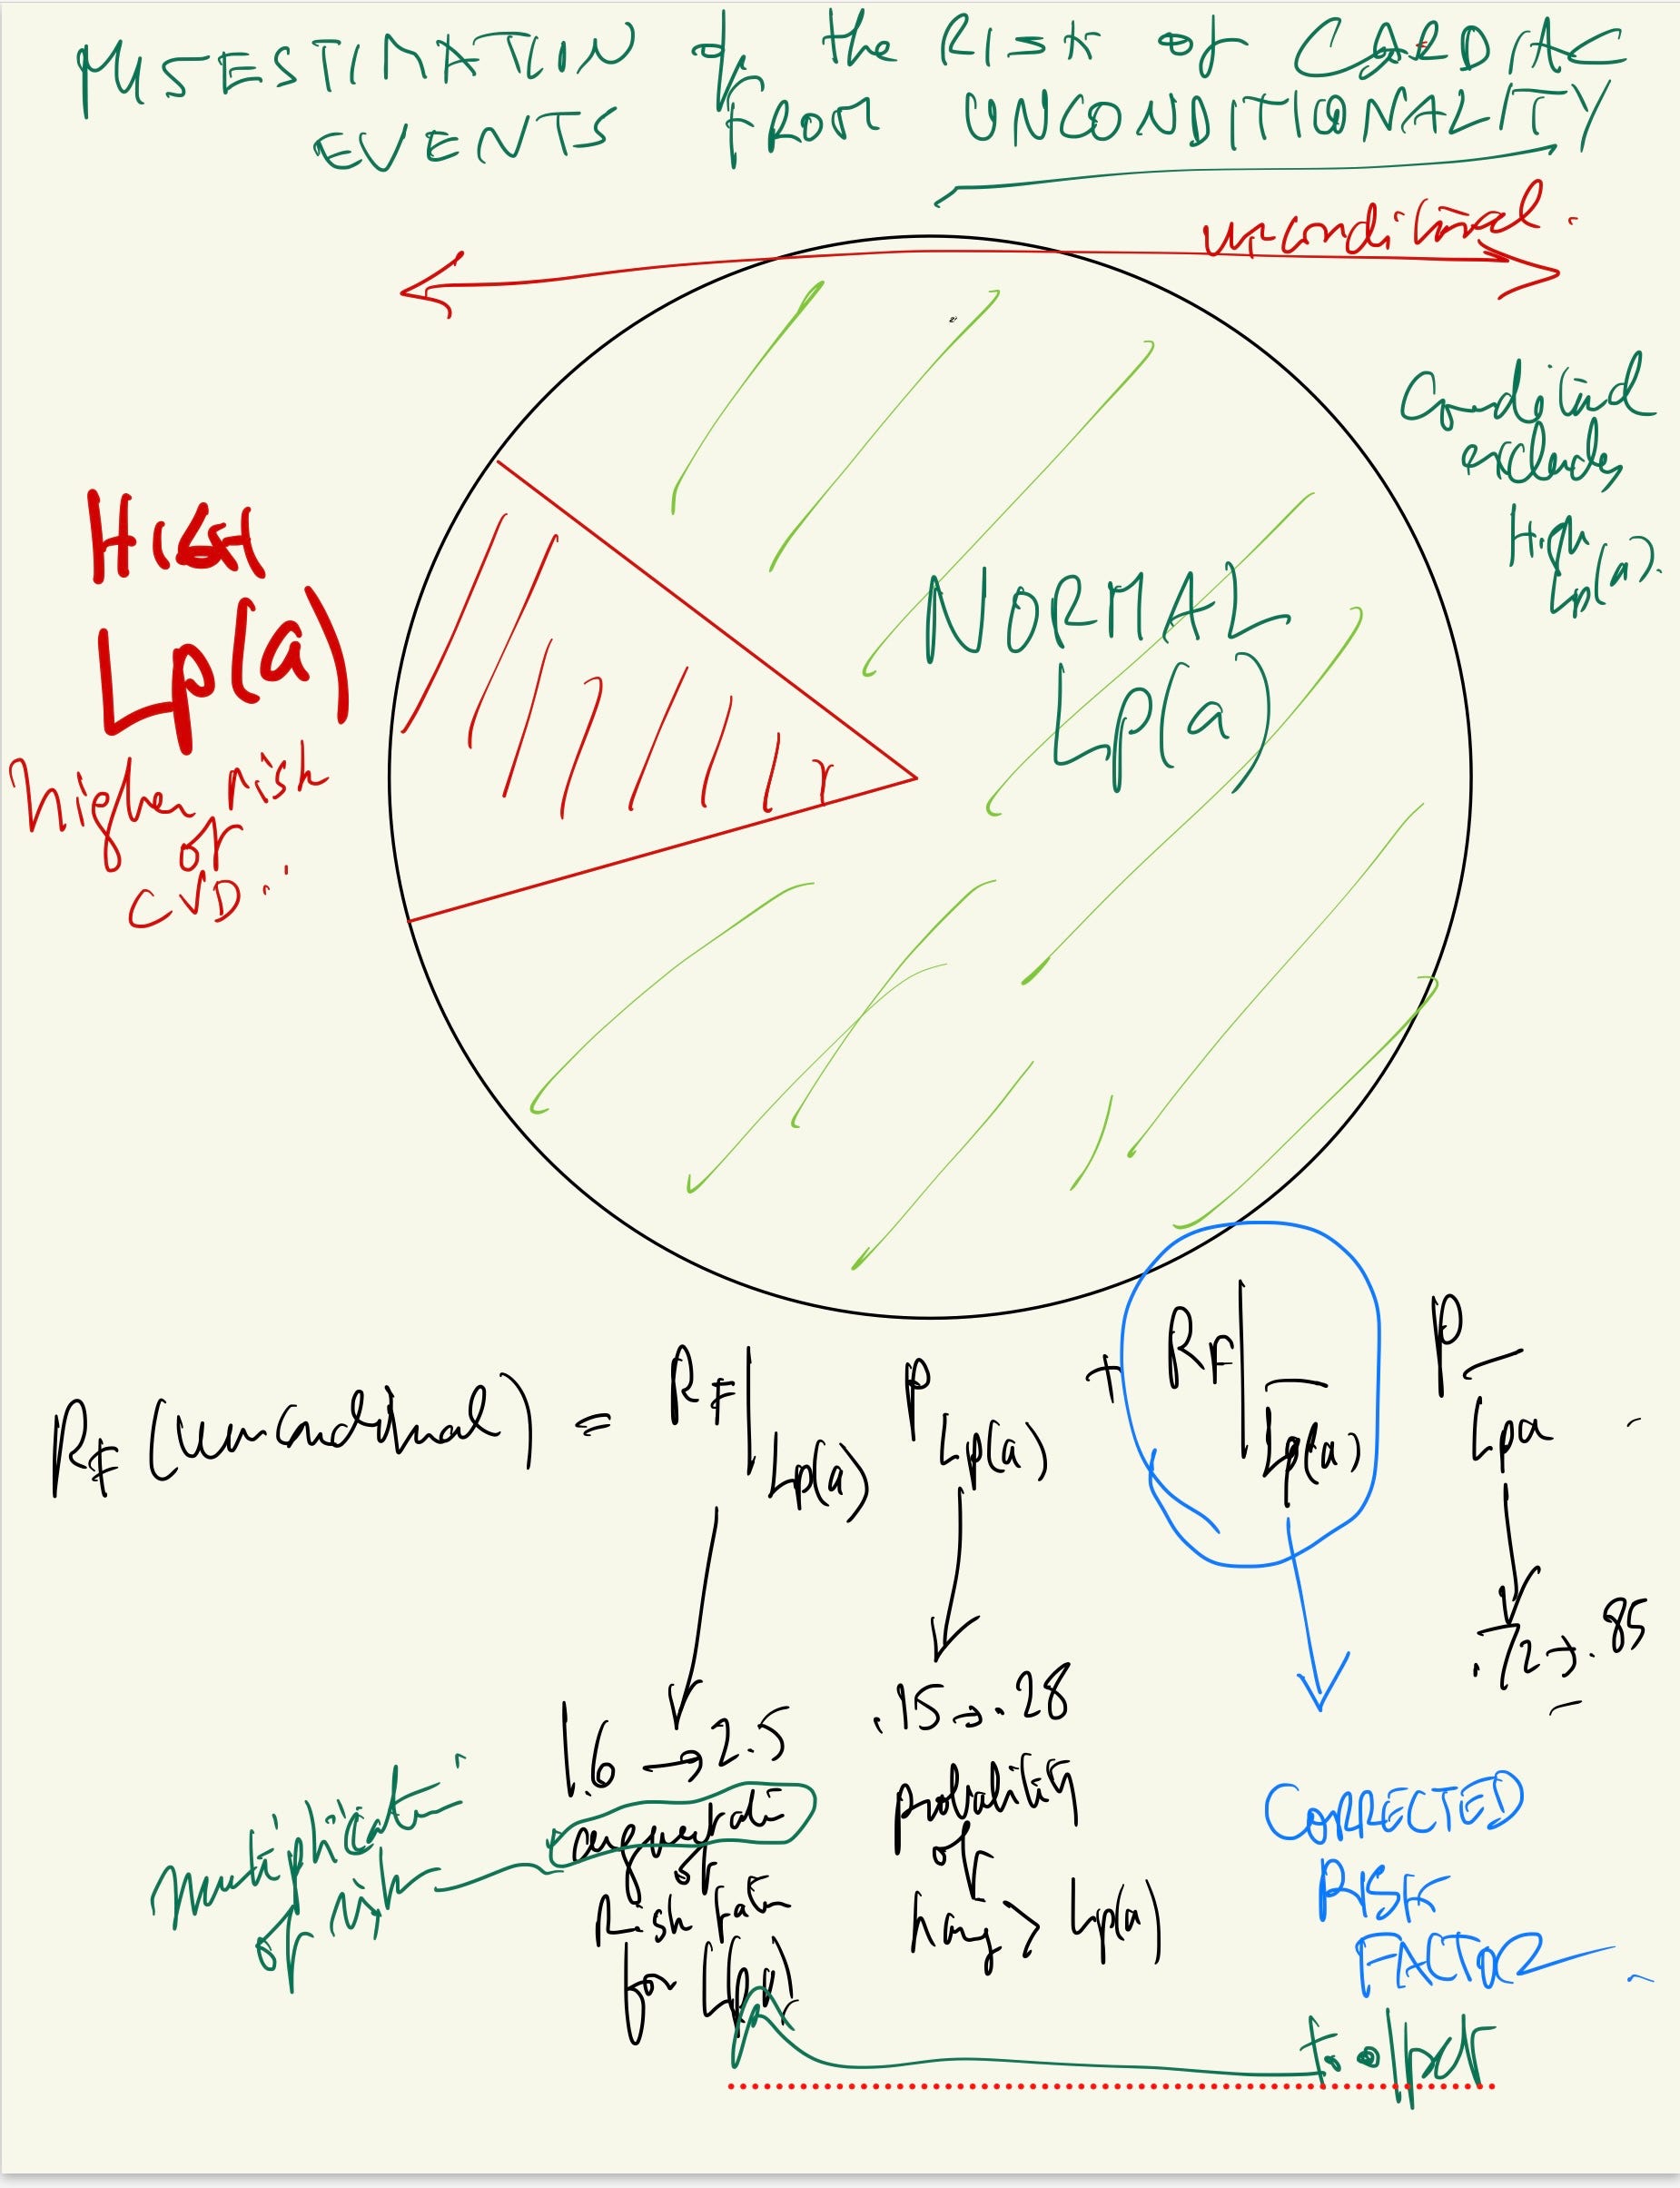 MISESTIMATION of the RISK of CARDIAC
EVENTS FROM UNCONDITIONALITY
unconditional.
Conditional
excludes
High
Lp(a).
HIGH
Lp(a)
higher risk
of
CVD
NORMAL
Lp(a)
RF (unconditional) = RF|Lp(a) P Lp(a) + RF|L̅p̅(̅a̅)̅ P L̅p̅a̅
1.6 → 2.5
.15 → .28
.72 → .85
multiplication
of risk
of
Risk
for Lp(a)
probability
of
having > Lp(a)
CORRECTED
RISK
FACTOR